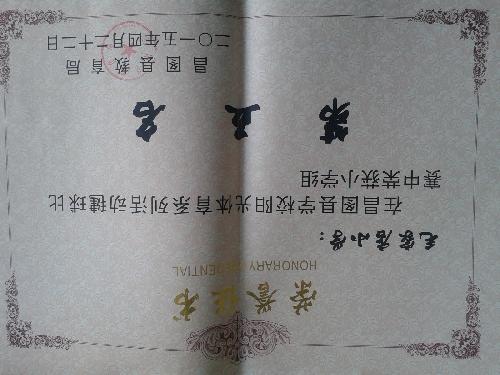 荣誉证书
HONORARY CREDENTIAL
毛家店小学：
在昌图县学校阳光体育系列活动毽球比
赛中荣获小学组
第五名
昌图县教育局
二〇一五年四月二十二日